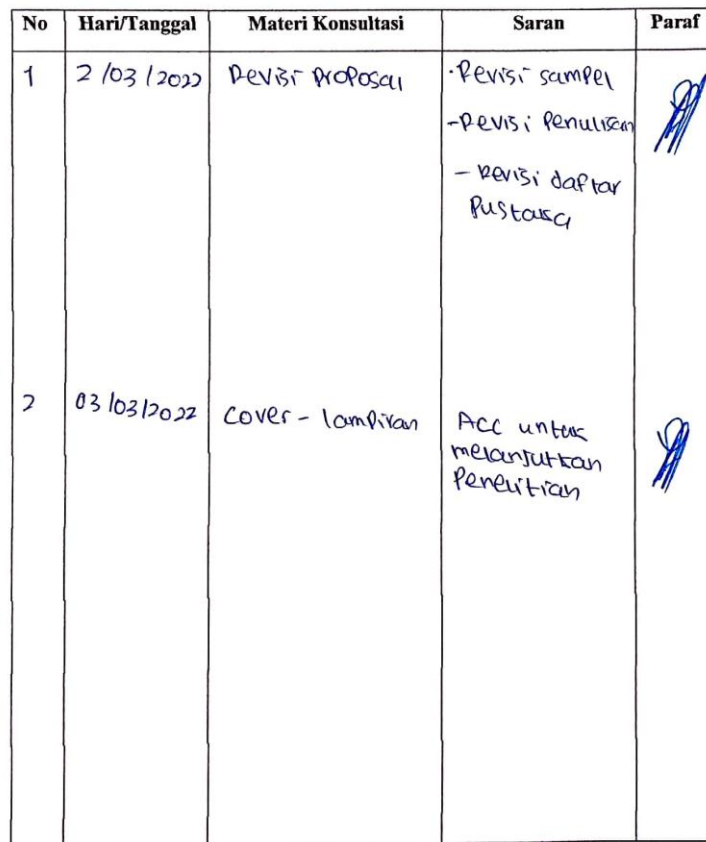 No Hari/Tanggal Materi Konsultasi Saran Paraf
1 2/03/2022 Revisi Proposal ·Revisi sampel
-Revisi Penulisan
- Revisi daftar
Pustaka
2 03/03/2022 Cover - lampiran ACC untuk
melanjutkan
Penelitian